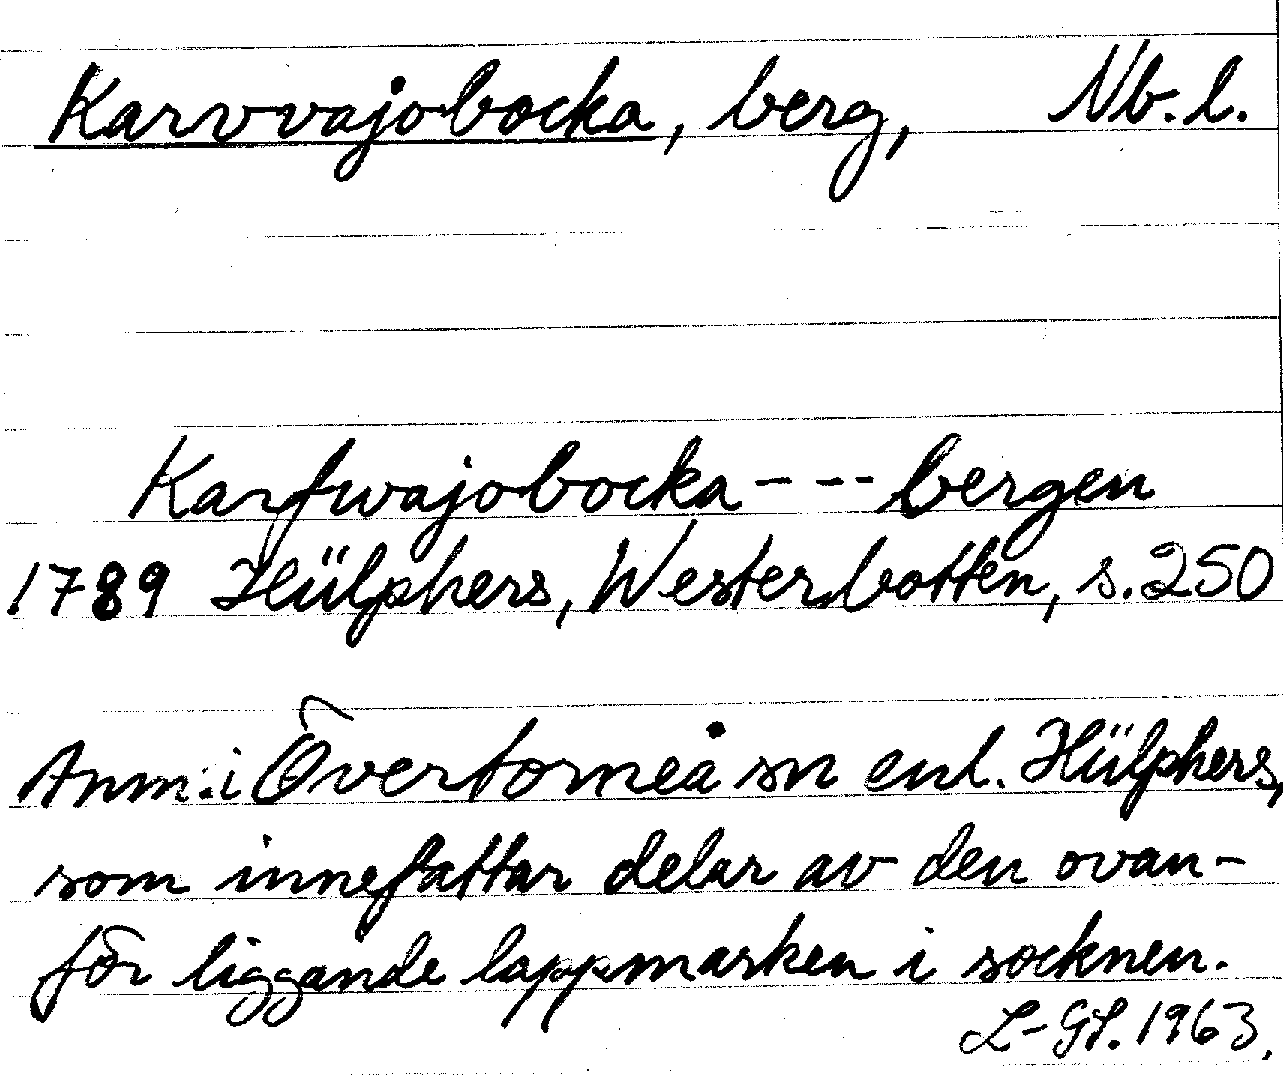 Karvvajobocka, berg, Nb. l.
Karfwajobocka - - - bergen
1789 Hülphers, Westerbotten, s. 250
Anm: i Övertorneå sn enl. Hülphers,
som innefattar delar av den ovan-
för liggande lappmarken i socknen.
L-GL. 1963.